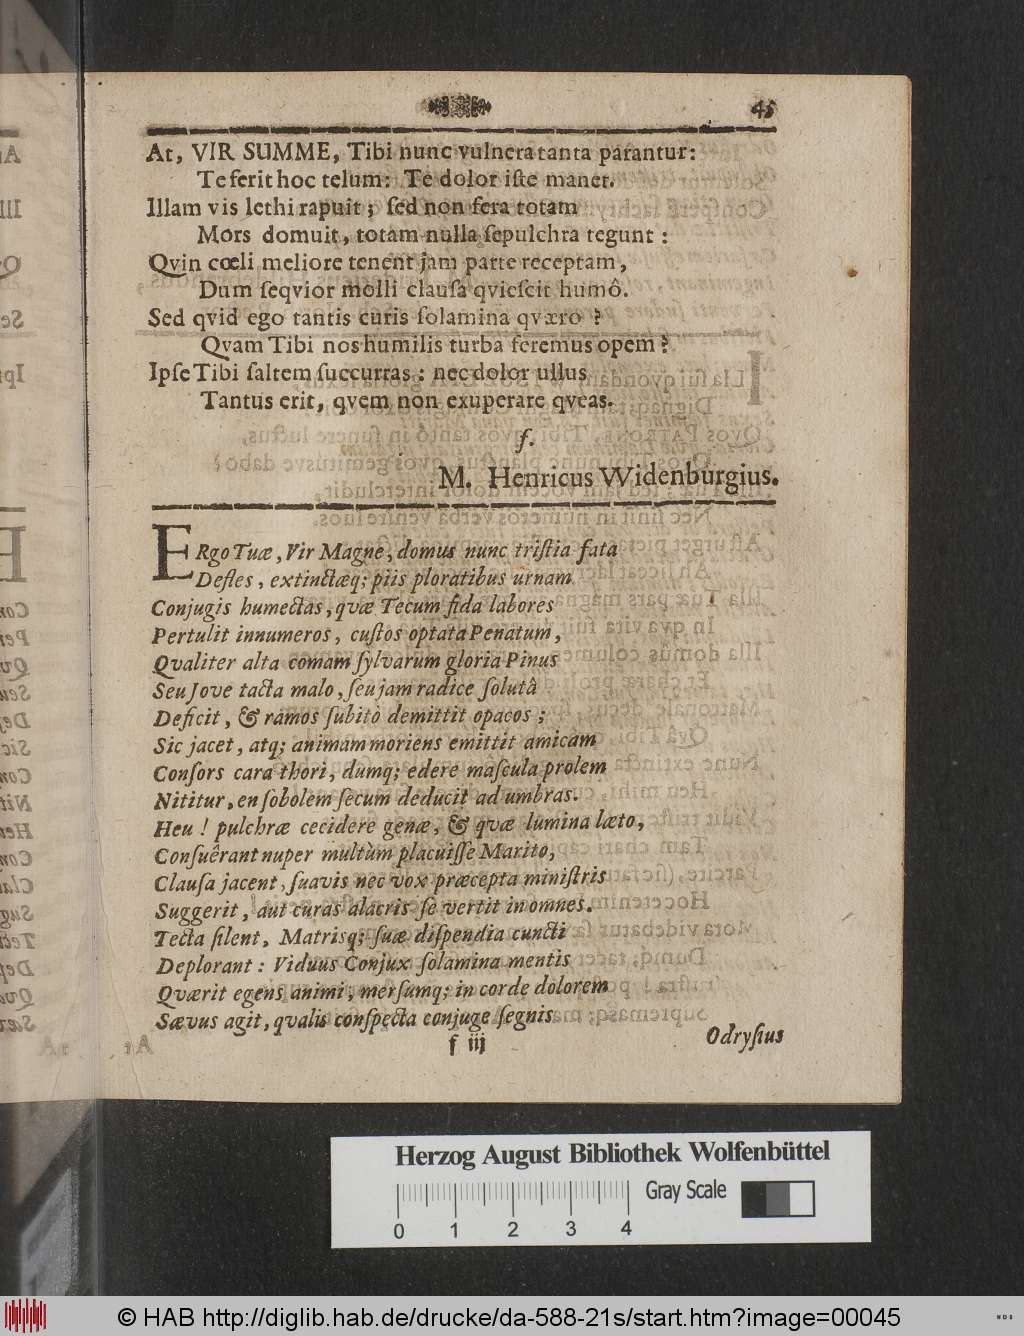 45
At, VIR SUMME, Tibi nunc vulnera tanta parantur:
Te ferit hoc telum: Te dolor iſte manet.
Illam vis lethi rapuit; ſed non fera totam
Mors domuit, totam nulla ſepulchra tegunt:
Qvin cœli meliore tenent jam parte receptam,
Dum ſeqvior molli clauſa qvieſcit humô.
Sed qvid ego tantis curis ſolamina qværo?
Qvam Tibi nos humilis turba feremus opem?
Ipſe Tibi ſaltem ſuccurras: nec dolor ullus
Tantus erit, qvem non exuperare qveas.
f.
M. Henricus Widenburgius.
ERgo Tuæ, Vir Magne, domus nunc triſtia fata
Defles, extinctæq; piis ploratibus urnam
Conjugis humectas, qvæ Tecum fida labores
Pertulit innumeros, cuſtos optata Penatum,
Qvaliter alta comam ſylvarum gloria Pinus
Seu Jove tacta malo, ſeu jam radice ſolutâ
Deficit, & ramos ſubitò demittit opacos;
Sic jacet, atq; animam moriens emittit amicam
Conſors cara thori, dumq; edere maſcula prolem
Nititur, en ſobolem ſecum deducit ad umbras.
Heu! pulchræ cecidere genæ, & qvæ lumina læto,
Conſuêrant nuper multùm placuiſſe Marito,
Clauſa jacent, ſuavis nec vox præcepta miniſtris
Suggerit, aut curas alacris ſe vertit in omnes.
Tecta ſilent, Matrisq; ſuæ diſpendia cuncti
Deplorant: Viduus Conjux ſolamina mentis
Qværit egens animi, merſumq; in corde dolorem
Sævus agit, qvalis conſpecta conjuge ſegnis
f iij
Odryſius
Herzog August Bibliothek Wolfenbüttel
Gray Scale
0 1 2 3 4
© HAB http://diglib.hab.de/drucke/da-588-21s/start.htm?image=00045